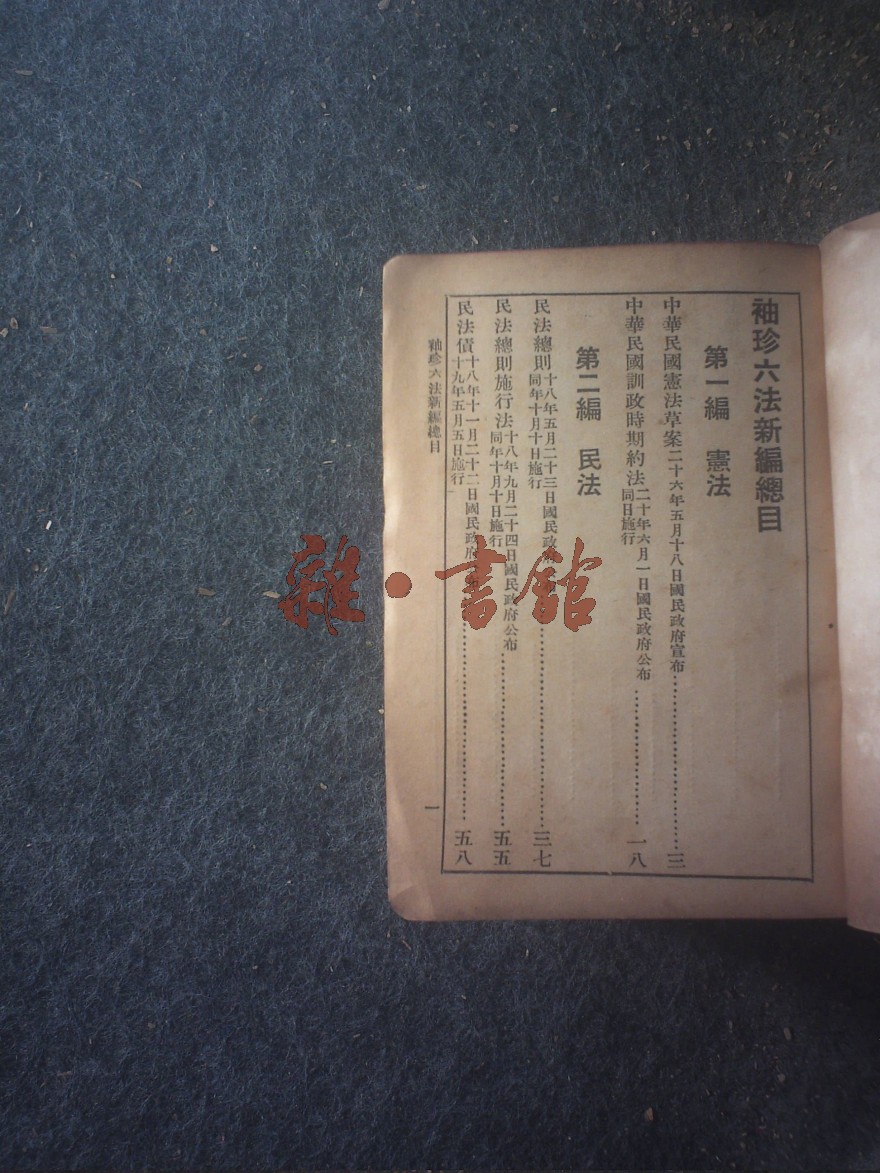 袖珍六法新編總目
第一編 憲法
中華民國憲法草案二十六年五月十八日國民政府宣布……三
中華民國訓政時期約法二十年六月一日國民政府公布同日施行……一八
第二編 民法
民法總則十八年五月二十三日國民政同年十月十日施行……三七
民法總則施行法十八年九月二十四日國民政府公布同年十月十日施行……五五
民法債十八年十一月二十二日國民政府十九年五月五日施行……五八
袖珍六法新編總目
一
雜·書館